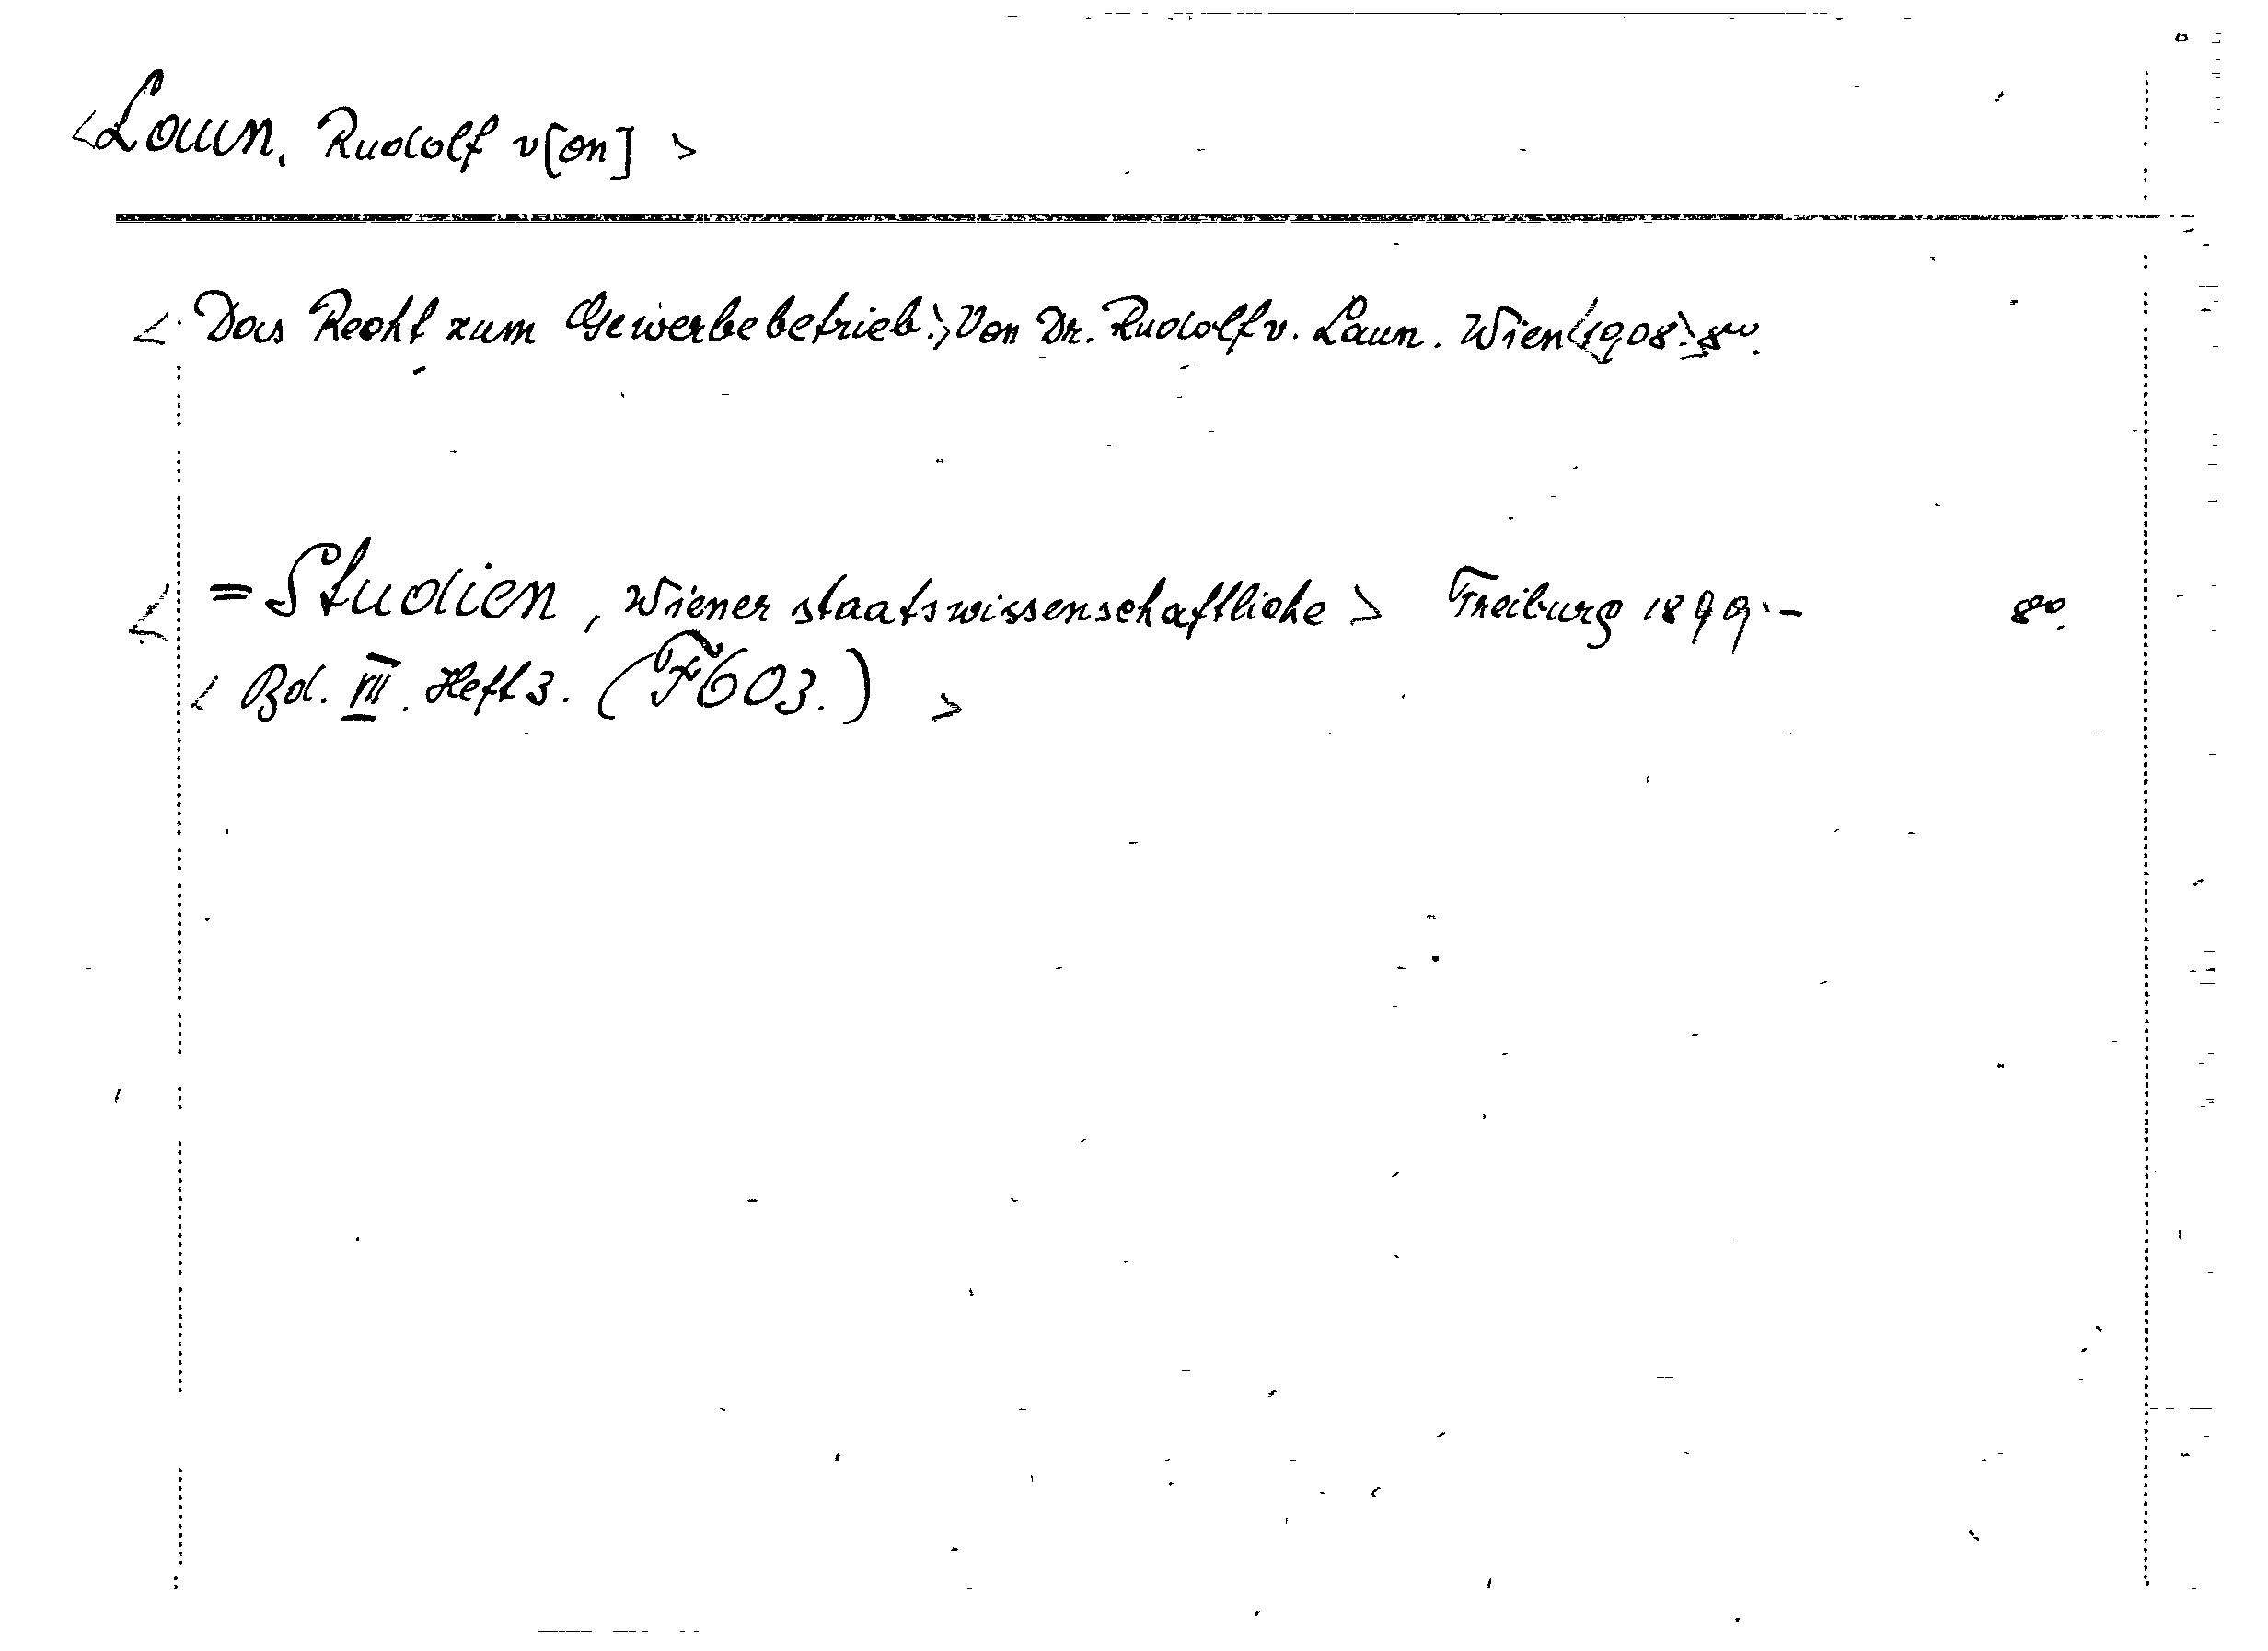 <Laun, Rudolf v[on] >
<. Das Recht zum Gewerbebetrieb.> Von Dr. Rudolf v. Laun. Wien <1908.> 8vo.
< = Studien, Wiener staatswissenschaftliche > Freiburg 1899.- 8vo.
< Bd. VII. Heft 3. (F603.) >